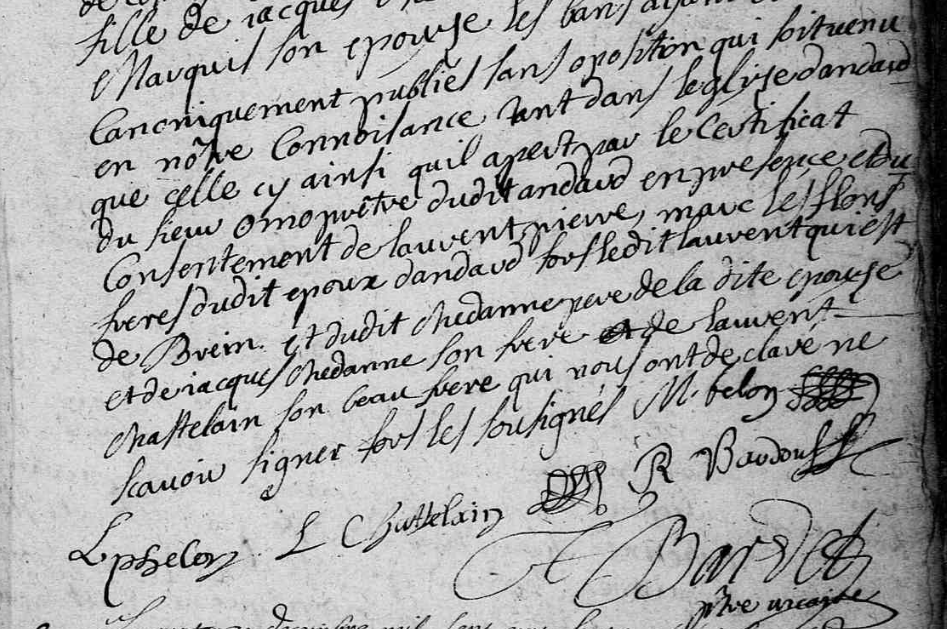 fille de jacques
Marquis son epouse les bans ayant
Canoniquement publiés sans oposition qui soit venu
en nôtre Connoisance tant dans leglise dandard
que celle cy ainsi quil apert par le Certificat
du sieur prêtre dudit andard en presence et du
Consentement de laurent, pierre, marc les
freres dudit epoux dandard fors ledit laurent qui est
de Brein. et dudit Chedanne pere de la dite epouse
et de jacques Chedanne son frere et de laurent
Chastelain son beau frere qui nous ont declaré ne
scavoir signer fors les sousignés M. belon
L phelon L Chattelain R Bardoul
Bardet
ptre vicaire